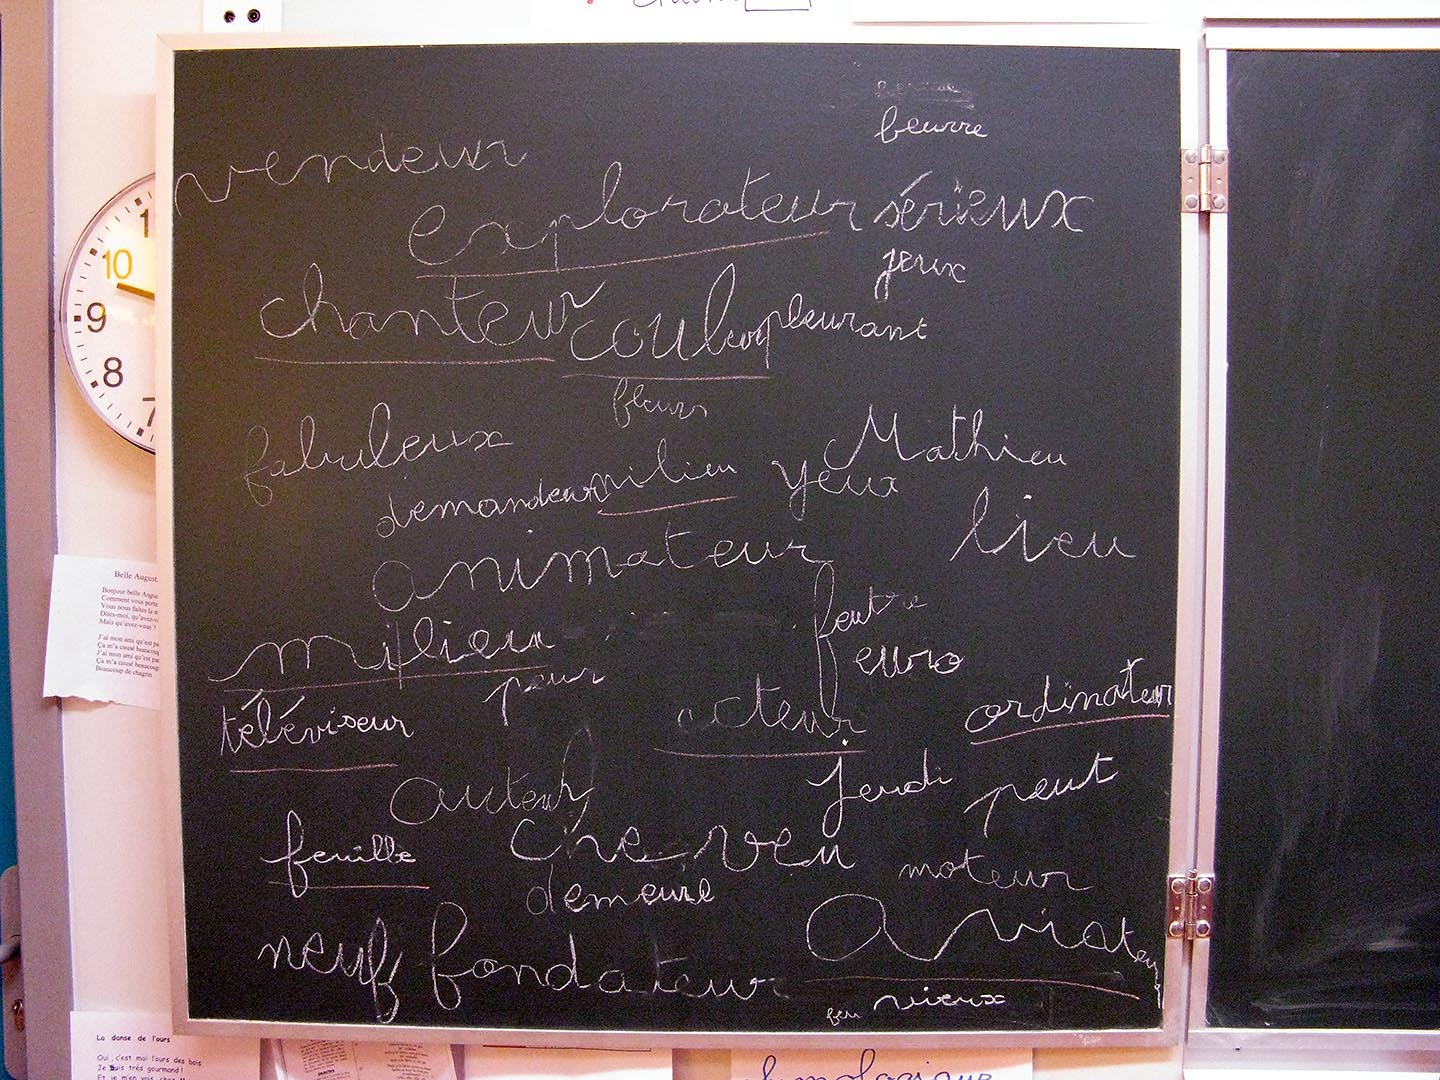 beurre
vendeur
explorateur sérieux
jeux
chanteur couleur pleurant
fleurs
fabuleux Mathieu
demandeur milieu yeux
lieu
animateur
feutre
milieux euro
peur
téléviseur acteur ordinateur
auteur jeudi peut
feuille cheveu moteur
demeure
neuf fondateur aviateur
feu vieux
10
9
8
7
Belle August
Bonjour belle Augus
Comment vous porte
Vous nous faites la m
Dites-moi, qu'avez-v
Mais qu'avez-vous ?
J'ai mon ami qu'est pa
Ça m'a causé beaucoup
J'ai mon ami qu'est par
Ça m'a causé beaucoup
Beaucoup de chagrin
La danse de l'ours
Oui, c'est moi l'ours des bois
Je suis très gourmand !
Et je m'en vais